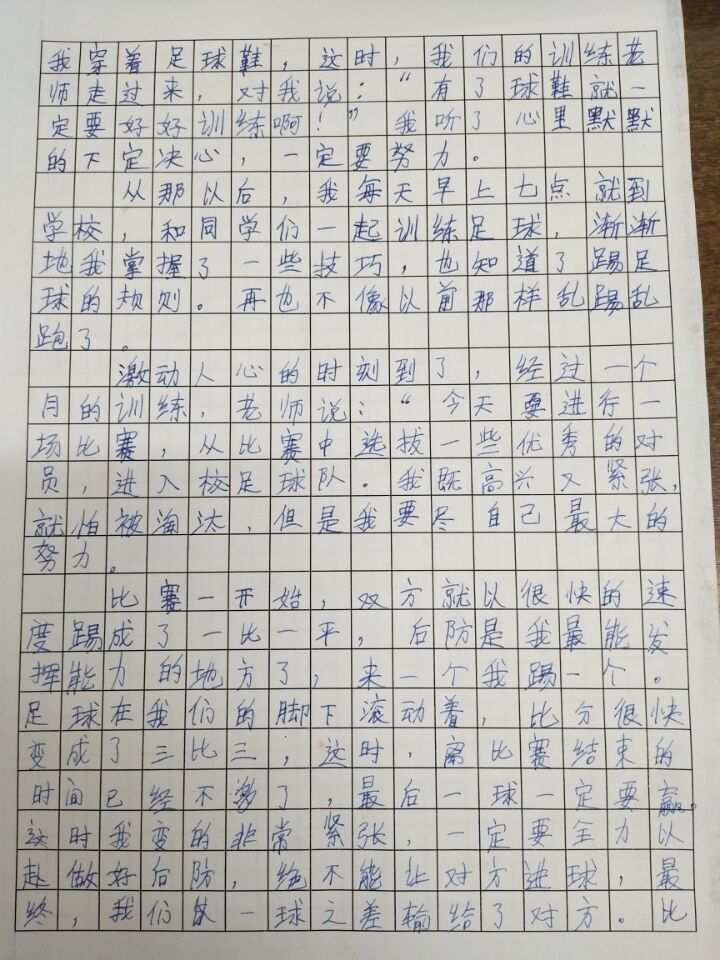 我穿着足球鞋，这时，我们的训练老
师走过来，对我说：“有了球鞋就一
定要好好训练啊！”我听了心里默默
的下定决心，一定要努力。
从那以后，我每天早上七点就到
学校，和同学们一起训练足球，渐渐
地我掌握了一些技巧，也知道了踢足
球的规则。再也不像以前那样乱踢乱
跑了。
激动人心的时刻到了，经过一个
月的训练，老师说：“今天要进行一
场比赛，从比赛中选拔一些优秀的对
员，进入校足球队。我既高兴又紧张，
就怕被淘汰，但是我要尽自己最大的
努力。
比赛一开始，双方就以很快的速
度踢成了一比一平，后防是我最能发
挥能力的地方了，来一个我踢一个。
足球在我们的脚下滚动着，比分很快
变成了三比三，这时，离比赛结束的
时间已经不多了，最后一球一定要赢。
这时我变的非常紧张，一定要全力以
赴做好后防，绝不能让对方进球，最
终，我们以一球之差输给了对方。比